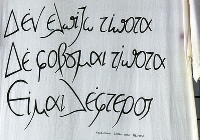 Δὲν ἐλπίζω τίποτα
Δὲ φοβᾶμαι τίποτα
Εἶμαι λέφτερος